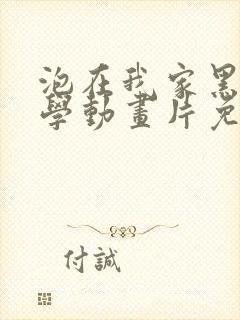 泡在我家黑
學動畫片免
付誠